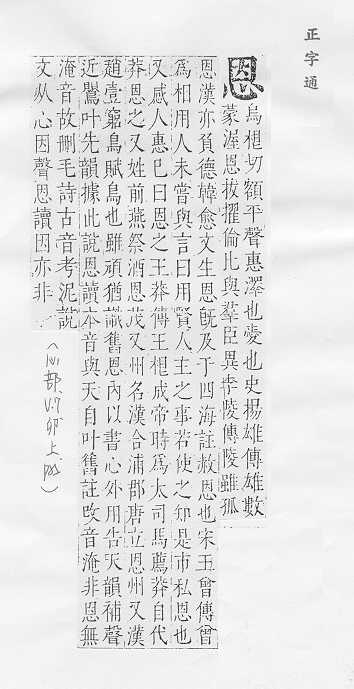 正字通
恩
烏根切額平聲惠澤也愛也史揚雄傳雄數
蒙渥恩拔擢倫比與羣臣異李陵傳陵雖孤
恩漢亦負德韓愈文生恩旣及于四海註赦恩也宋王曾傳曾
爲相用人未嘗與言曰用賢人主之事若使之知是市私恩也
又感人惠已曰恩之王莽傳王根成帝時爲太司馬薦莽自代
莽恩之又姓前燕祭酒恩茂又州名漢合浦郡唐立恩州又漢
趙壹窮鳥賦鳥也雖頑猶識舊恩內以書心外用告天韻補聲
近鷖叶先韻據此說恩讀本音與天自叶舊註改音淹非恩無
淹音故刪毛詩古音考泥說
文从心因聲恩讀因亦非
(心部 卯上)